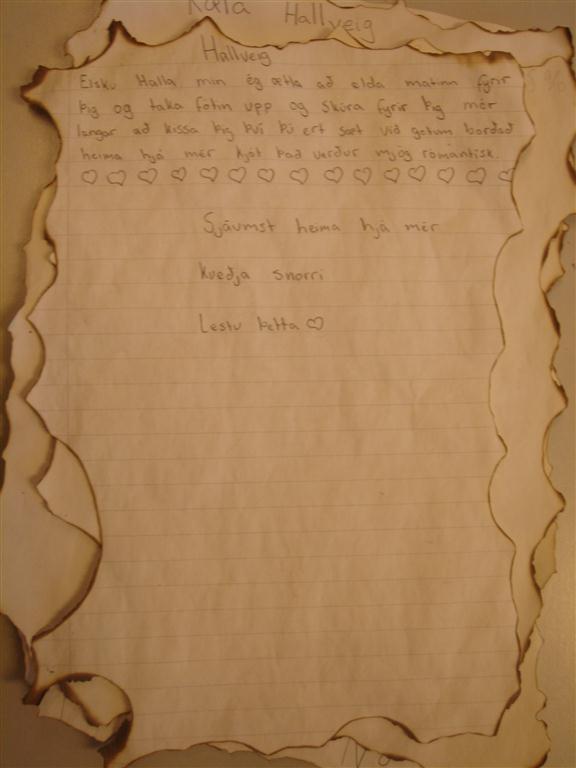 Kæra Hallveig
Hallveig
Elsku Halla mín ég ætla að elda matinn fyrir
þig og taka fötin upp og skúra fyrir þig mér
langar að kissa þig því þú ert sæt við getum borðað
heima hjá mér kjöt það verður mjög rómantísk.
♡ ♡ ♡ ♡ ♡ ♡ ♡ ♡ ♡ ♡ ♡ ♡ ♡ ♡ ♡
Sjáumst heima hjá mér
Kveðja Snorri
Lestu þetta ♡